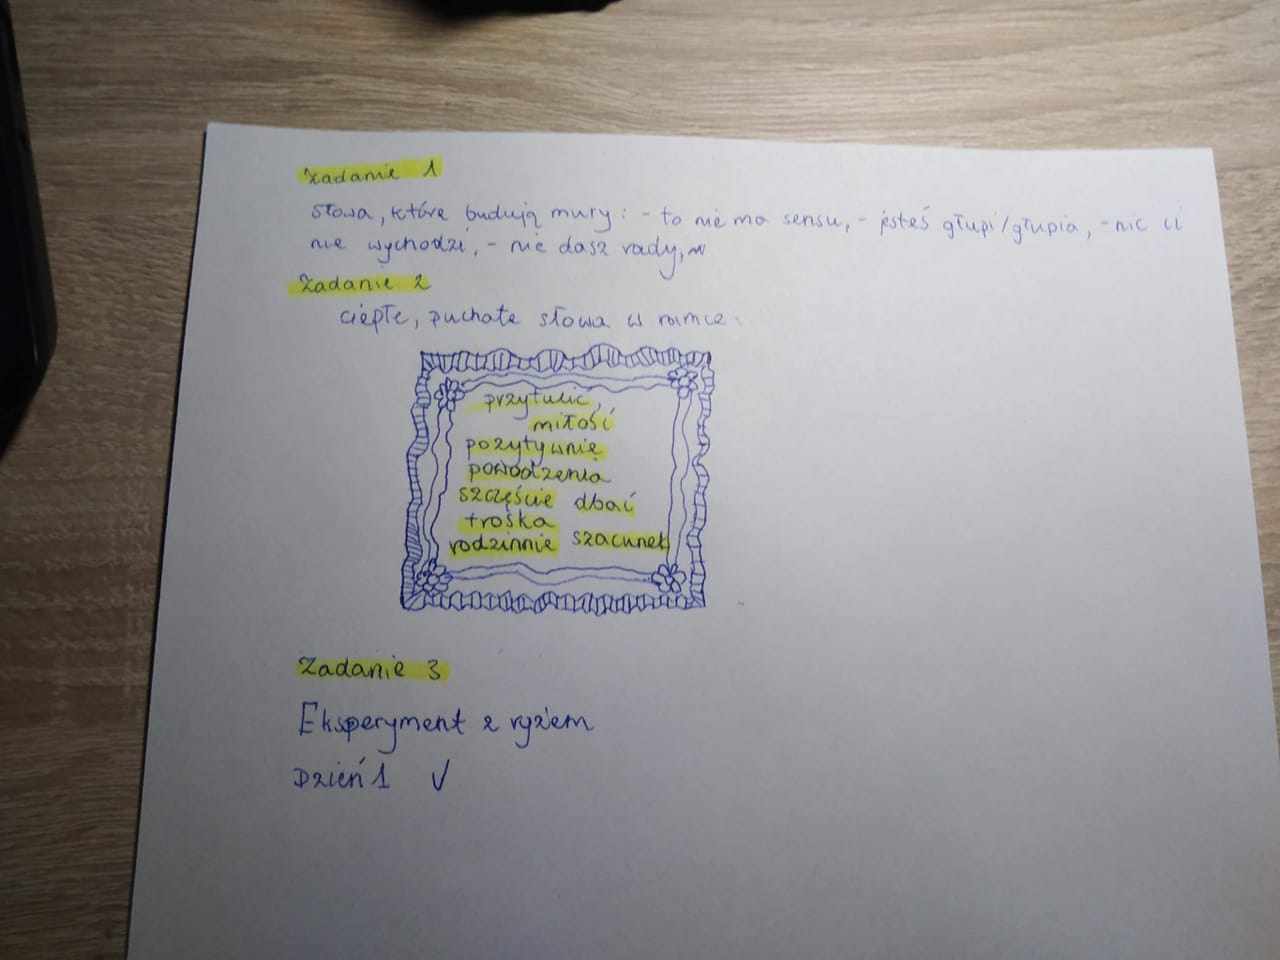 Zadanie 1
słowa, które budują mury: - to nie ma sensu, - jesteś głupi/głupia, - nic ci
nie wychodzi, - nie dasz rady,
Zadanie 2
ciepłe, puchate słowa w ramce:
przytulić,
miłość
pozytywnie
powodzenia
szczęście dbać
troska
rodzinnie szacunek
Zadanie 3
Eksperyment z ryżem
Dzień 1 √